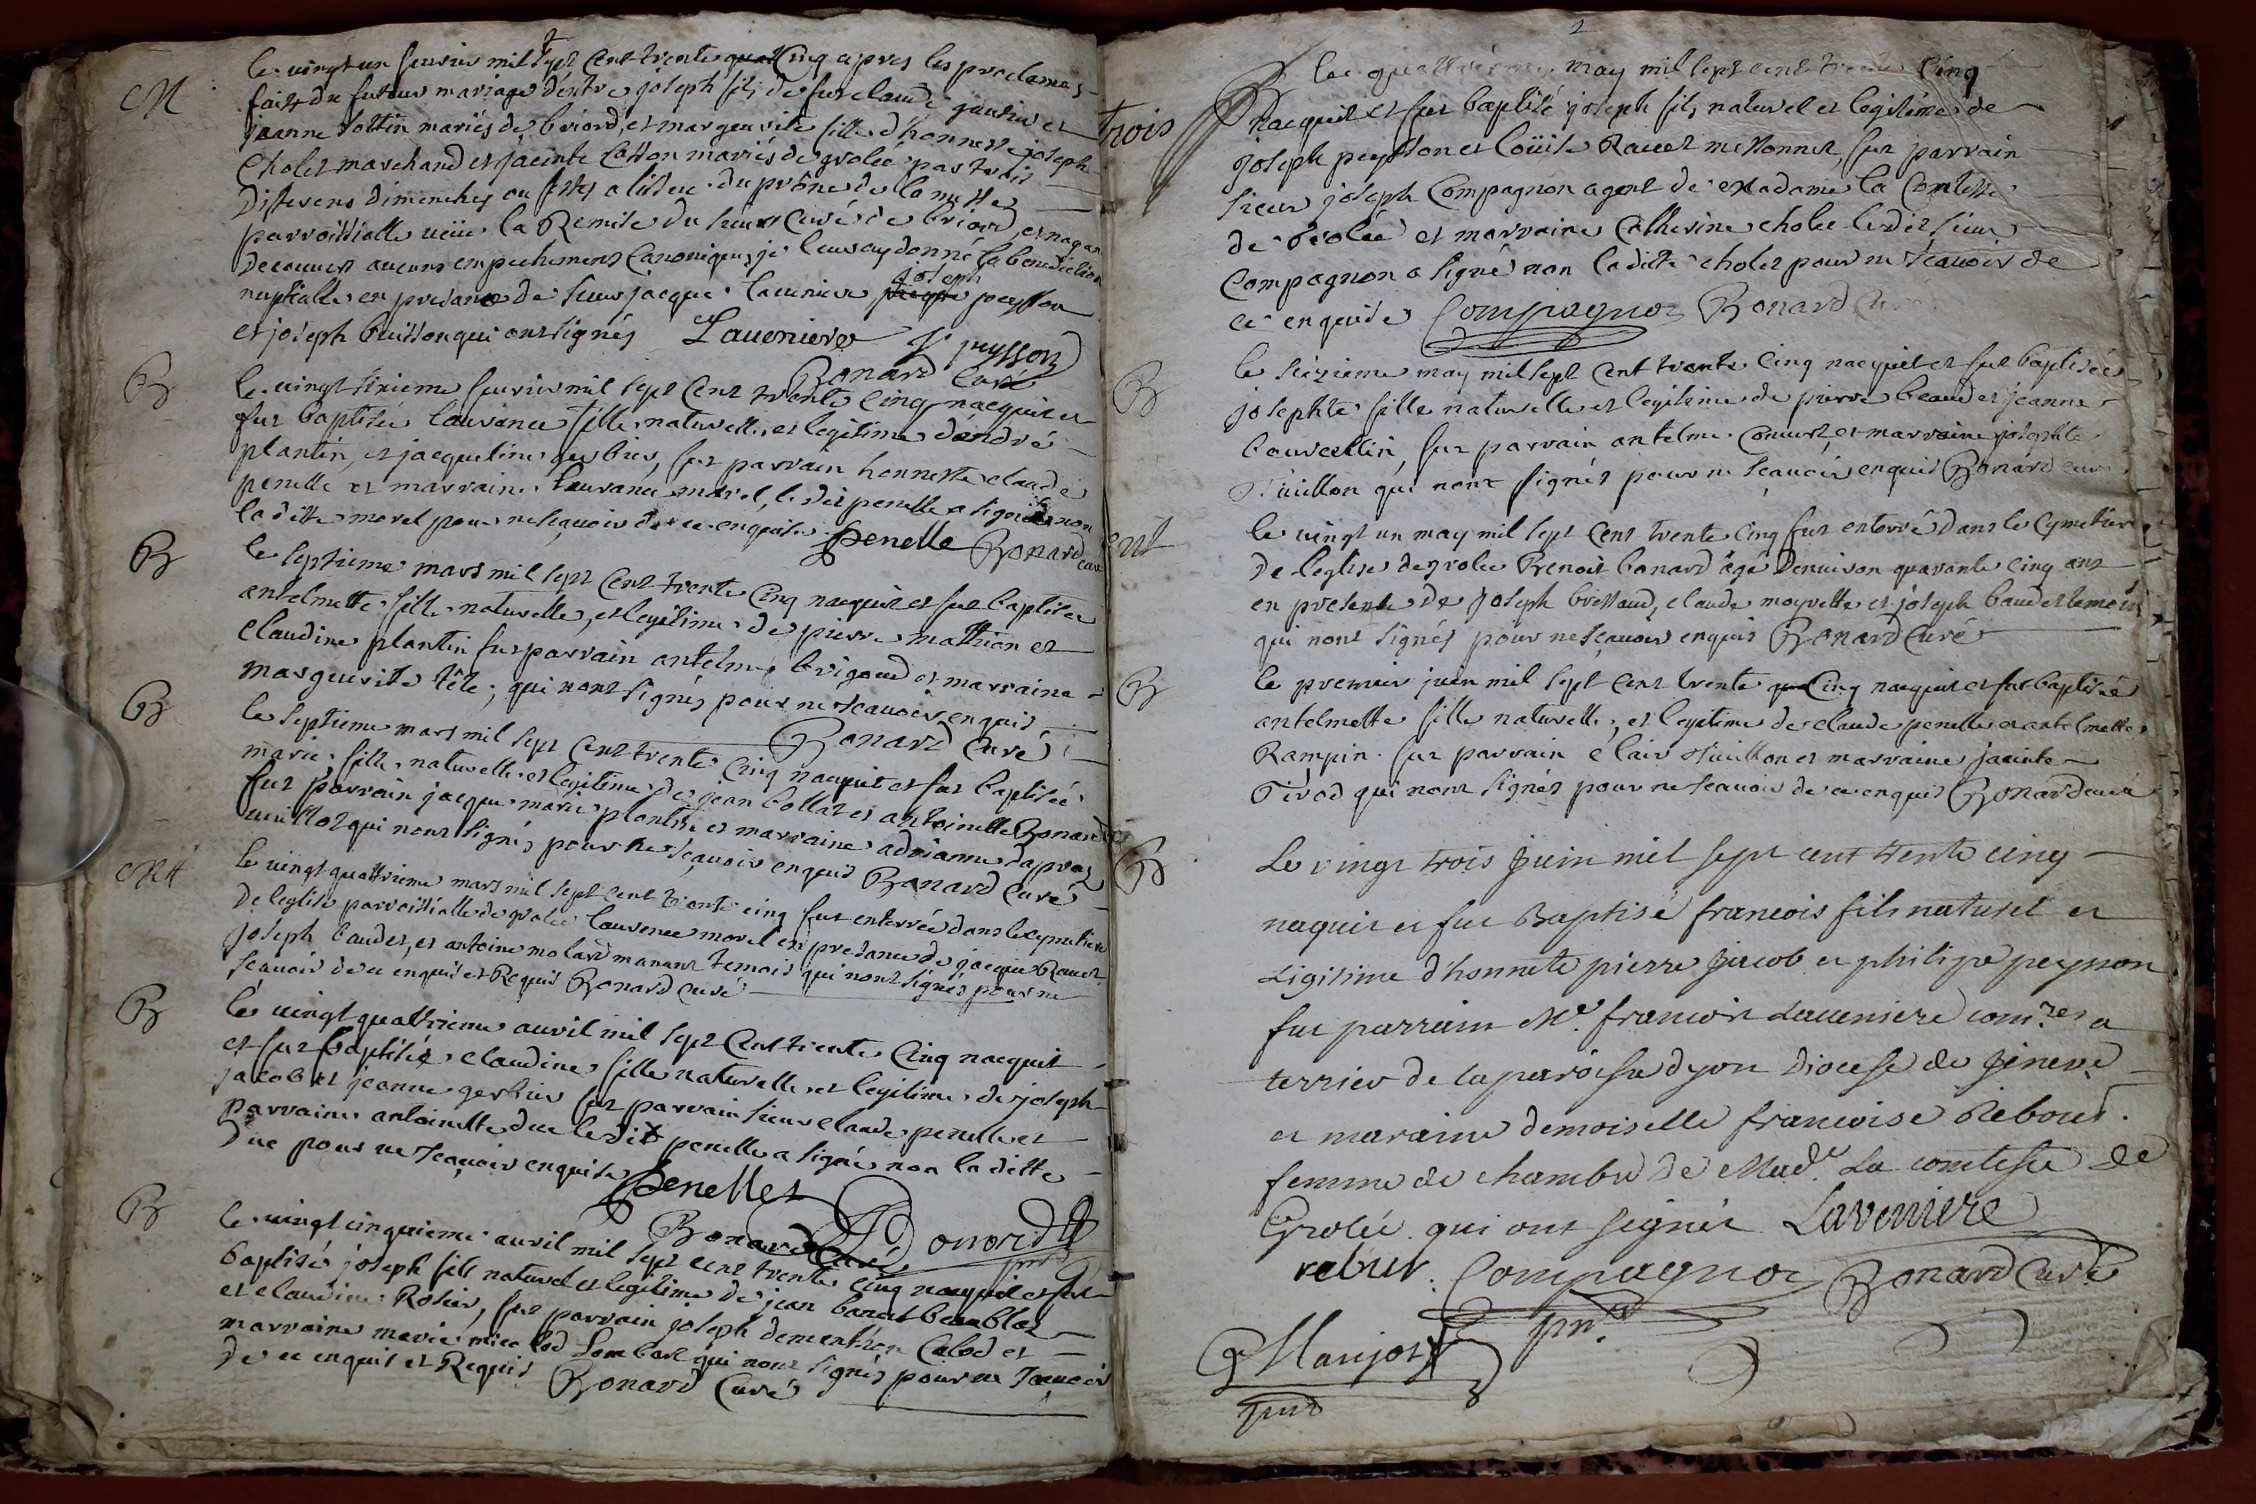 M
le vingt un feurier mil sept cent trente quat cinq apres les proclamas
fait du futeur mariage d'entre joseph fils de feu claude gautier et
jeanne Sottin mariés de briord, et marguerite fille d'honneste joseph
Cholet marchand et jacinte Catton mariés de grolée par trois
differens dimenches ou fetes a lissue du prône de la messe
parroissialle veüe la Remise du sieur Curé de briord, et nayan
decouuert aucuns empechemens Canoniques je leur ay donné la benediction
nuptialle en presance de sieur jacque Laueniere joseph peysson
et joseph buisson qui ont signés Laueniere J peysson
Bonard Curé
B
le vingt sixieme feurier mil sept cent trente Cinq nacquit et
fut baptisée laurance fille naturelle et legitime d'andré
plantin, et jacqueline gerbier, fut parrain honneste claude
penelle et marraine laurance morel, le dit penelle a signé non
la ditte morel pour ne sçauoir de ce enquise Penelle Bonard curé
B
le septieme mars mil sept cent trente Cinq nacquit et fut baptisée
antelmette fille naturelle, et legitime de pierre mathion et
claudine plantin fut parrain antelme brigoud et marraine
marguerite tête; qui n'ont signés pour ne sçauoir enquis
Bonard Curé
B
le septieme mars mil sept cent trente Cinq nacquit et fut baptisée
marie fille naturelle et legitime de jean bollat et antoinette Bonard
fut parrain jacque marie plantin et marraine adrianne dapraz
qui n'ont signés pour ne sçauoir enquis Bonard Curé
Mt
le vingt quattrieme mars mil sept cent trente cinq fut enterrée dans le cymetiere
de leglise parroissialle de grolée laurence morel en presance de jacque Rauet
joseph baudet, et antoine molard manant temois qui n'ont signés pour ne
sçauoir de ce enquis et Requis Bonard curé
B
le vingt quattrieme auril mil sept Cent trente Cinq nacquit
et fut baptisée claudine fille naturelle et legitime de joseph
jacob et jeanne gerbier fut parrain sieur claude penelle et
marraine antoinette duc le dit penelle a signé non la ditte
duc pour ne sçauoir enquise Penelle
Bonard Curé Bonard pnt
B
le vingt cinquieme auril mil sept cent trente cinq nacquit et fut
baptisé joseph fils naturel et legitime de jean banet beaublat
et claudine Rosier, fut parrain joseph dementhon Calod et
marraine marie lombard qui n'ont signés pour ne sçauoir
de ce enquis et Requis Bonard Curé
2
trois
B
le quattrieme may mil sept cent trente Cinq
nacquit et fut baptisé joseph fils naturel et legitime de
joseph peysson et loüise Rauet fut parrain
sieur joseph Compagnon agent de Madame la Comtesse
de Grolée et marraine Catherine cholet le dit sieur
Compagnon a signé non la ditte cholet pour ne sçauoir de
ce enquise Compagnon Bonard Curé
B
le seizieme may mil sept cent trente Cinq nacquit et fut baptisée
josephte fille naturelle et legitime de pierre beaud et jeanne
bourcellin, fut parrain antelme Conuert, et marraine josephte
Vuillon qui n'ont signés pour ne sçauoir enquis Bonard curé
ent
le vingt un may mil sept cent trente Cinq fut enterré dans le Cymetiere
de leglise de grolée Benoit bonard âgé denuiron quarante cinq ans
en presence de joseph brissaud, claude moyrette et joseph baudet temoins
qui n'ont signés pour ne sçauoir enquis Bonard Curé
B
le premier juin mil sept cent trente Cinq nacquit et fut baptisée
antelmette fille naturelle, et legitime de claude penelle et antelmette
Rampin fut parrain clair Vuillon et marraine jacinte
Tirod qui n'ont signés pour ne sçauoir de ce enquis Bonard curé
B
Le vingt trois juin mil sept cent trente cinq
naquit et fut Baptisé francois fils naturel et
Ligitime d'honnete pierre Jacob et philipe peysson
fut parrain Me. francois Laueniere com.re a
terrier de la paroisse dyon Diocese de Jeneve
et maraine demoiselle francoise Rebout
femme de chambre de Mad.e La comtesse de
Grolée qui ont signés Laveniere
rebut. Compagnon pnt. Bonard Curé
Maujot
pnt